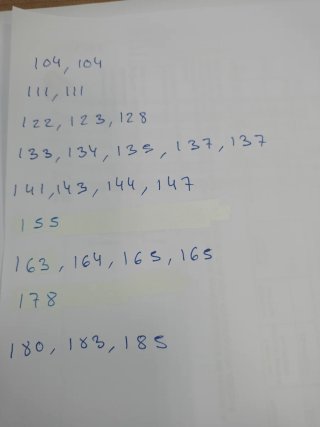 104, 104
111, 111
122, 123, 128
133, 134, 135, 137, 137
141, 143, 144, 147
155
163, 164, 165, 165
178
180, 183, 185